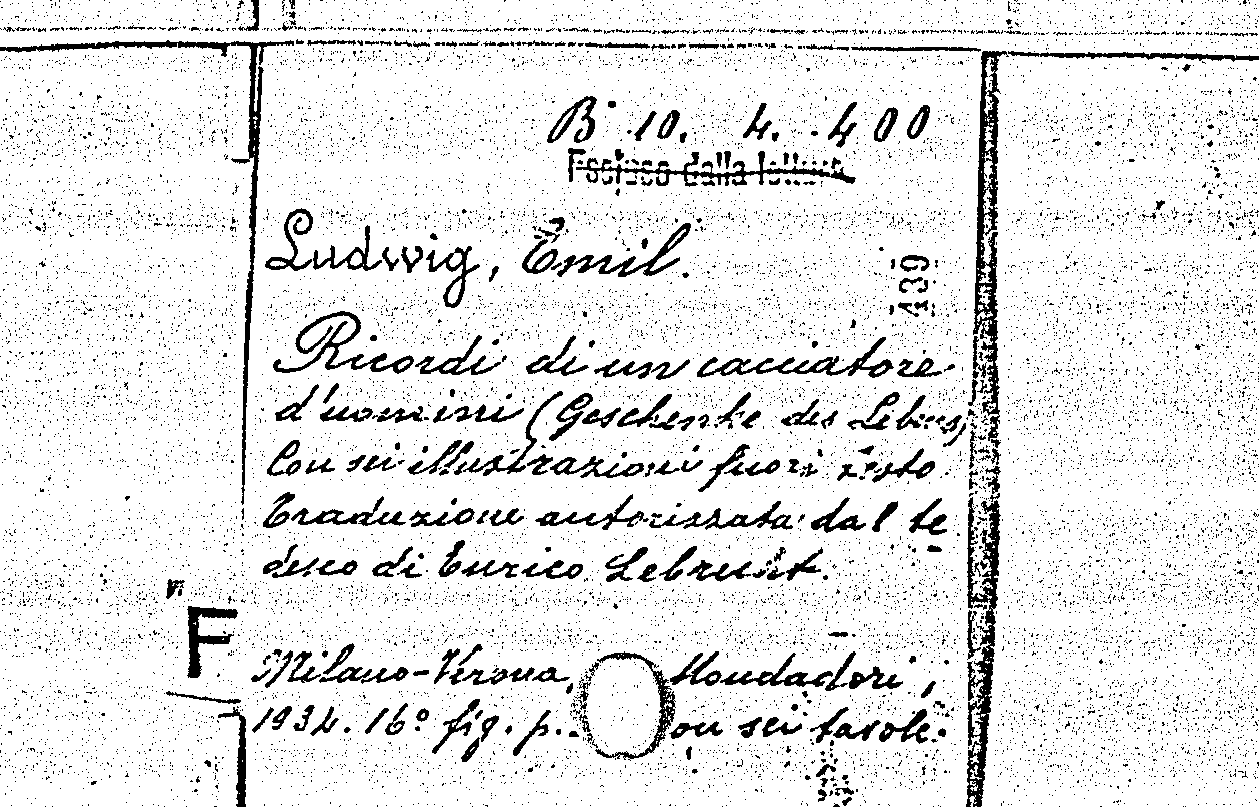 B 10. 4. 400
Escluso dalla lettura
Ludwig, Emil.
439
Ricordi di un cacciatore
d'uomini (Geschenke des Lebens)
Con sei illustrazioni fuori testo
Traduzione autorizzata dal te
desco di Enrico
F
Milano-Verona, Mondadori,
1934. 16º fig. p. con sei tavole.